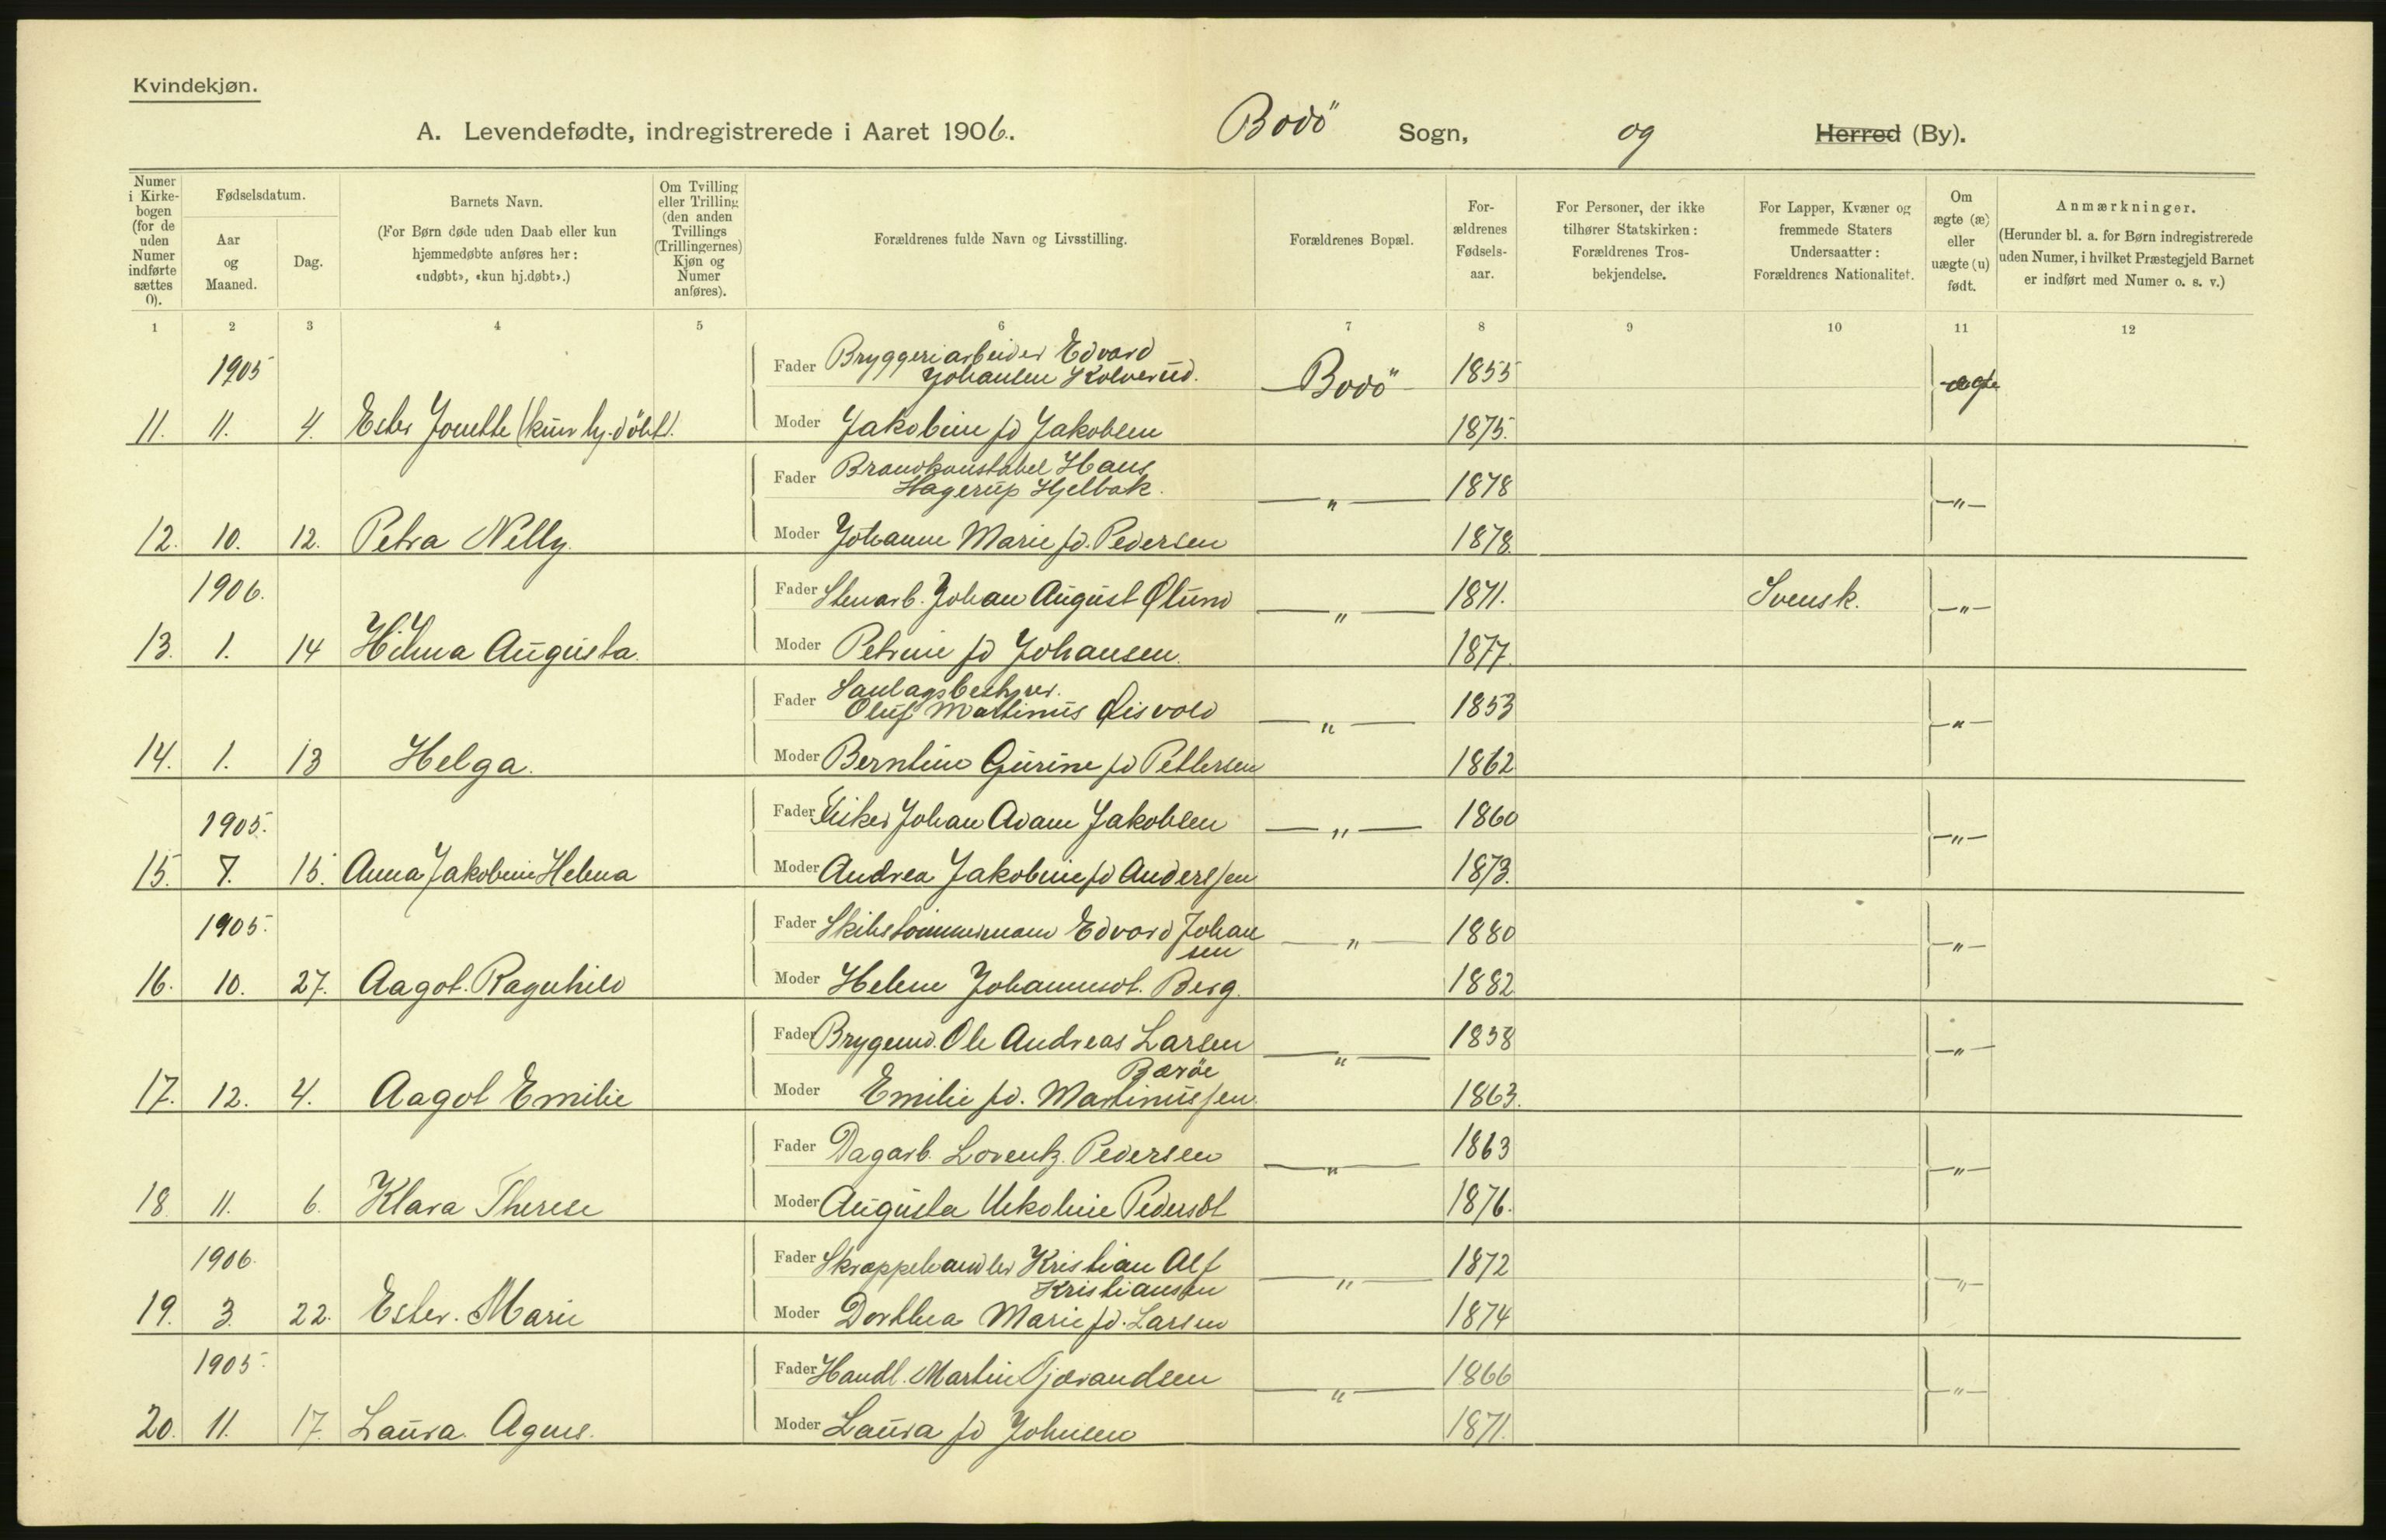 Kvindekjøn.
A. Levendefødte, indregistrerede i Aaret 1906. Bodö Sogn, og Herred (By).
Numer i Kirkebogen (for de uden Numer indførte sættes 0).
Fødselsdatum.
Aar og Maaned.
Dag.
Barnets Navn.
(For Børn døde uden Daab eller kun hjemmedøbte anføres her: «udøbt», «kun hj.døbt».)
Om Tvilling eller Trilling (den anden Tvillings (Trillingernes) Kjøn og Numer anføres).
Forældrenes fulde Navn og Livsstilling.
Forældrenes Bopæl.
For-ældrenes Fødsels-aar.
For Personer, der ikke tilhører Statskirken: Forældrenes Tros-bekjendelse.
For Lapper, Kvæner og fremmede Staters Undersaatter: Forældrenes Nationalitet.
Om ægte (æ) eller uægte (u) født.
Anmærkninger.
(Herunder bl. a. for Børn indregistrerede uden Numer, i hvilket Præstegjeld Barnet er indført med Numer o. s. v.)
1 2 3 4 5 6 7 8 9 10 11 12
1905 Fader Bryggeriarbeider Edvard Johansen Kolverud. Bodö 1855 ægte
11. 11. 4. Ester Jonette (kun hj. döbt). Moder Jakobine fd Jakobsen 1875.
Fader Brandkonstabel Hans Hagerup Hjelbak. — " — 1878 — " —
12. 10. 12. Petra Nelly. Moder Johanne Marie fd. Pedersen 1878.
1906. Fader Stenarb. Johan August Ølund — " — 1871. Svensk. — " —
13. 1. 14 Hilma Augusta. Moder Petrine fd Johansen. 1877.
Fader Oluf Martinus Øisvold — " — 1853 — " —
14. 1. 13 Helga. Moder Berntine Gurine fd Pettersen 1862
1905. Fader Fisker Johan Adam Jakobsen — " — 1860 — " —
15. 7. 15. Anna Jakobine Helena Moder Andrea Jakobine fd Anderssen 1873.
1905. Fader Skibstømmermand Edvard Johansen — " — 1880 — " —
16. 10. 27. Aagot Ragnhild Moder Helene Johannesdt. Berg. 1882
Fader Brygemd. Ole Andreas Larsen Barøe — " — 1858 — " —
17. 12. 4. Aagot Emilie Moder Emilie fd. Martinussen. 1863.
Fader Dagarb. Lorentz Pedersen — " — 1863 — " —
18. 11. 6. Klara Therese Moder Augusta Pedersdt 1876.
1906. Fader Skraphandler Kristian Alf Kristiansen — " — 1872 — " —
19. 3. 22. Ester Marie Moder Dorthea Marie fd. Larsen 1874
1905. Fader Handl. Martin Tjærandsen — " — 1866 — " —
20. 11. 17. Laura Agnes. Moder Laura fd Johnsen 1871.